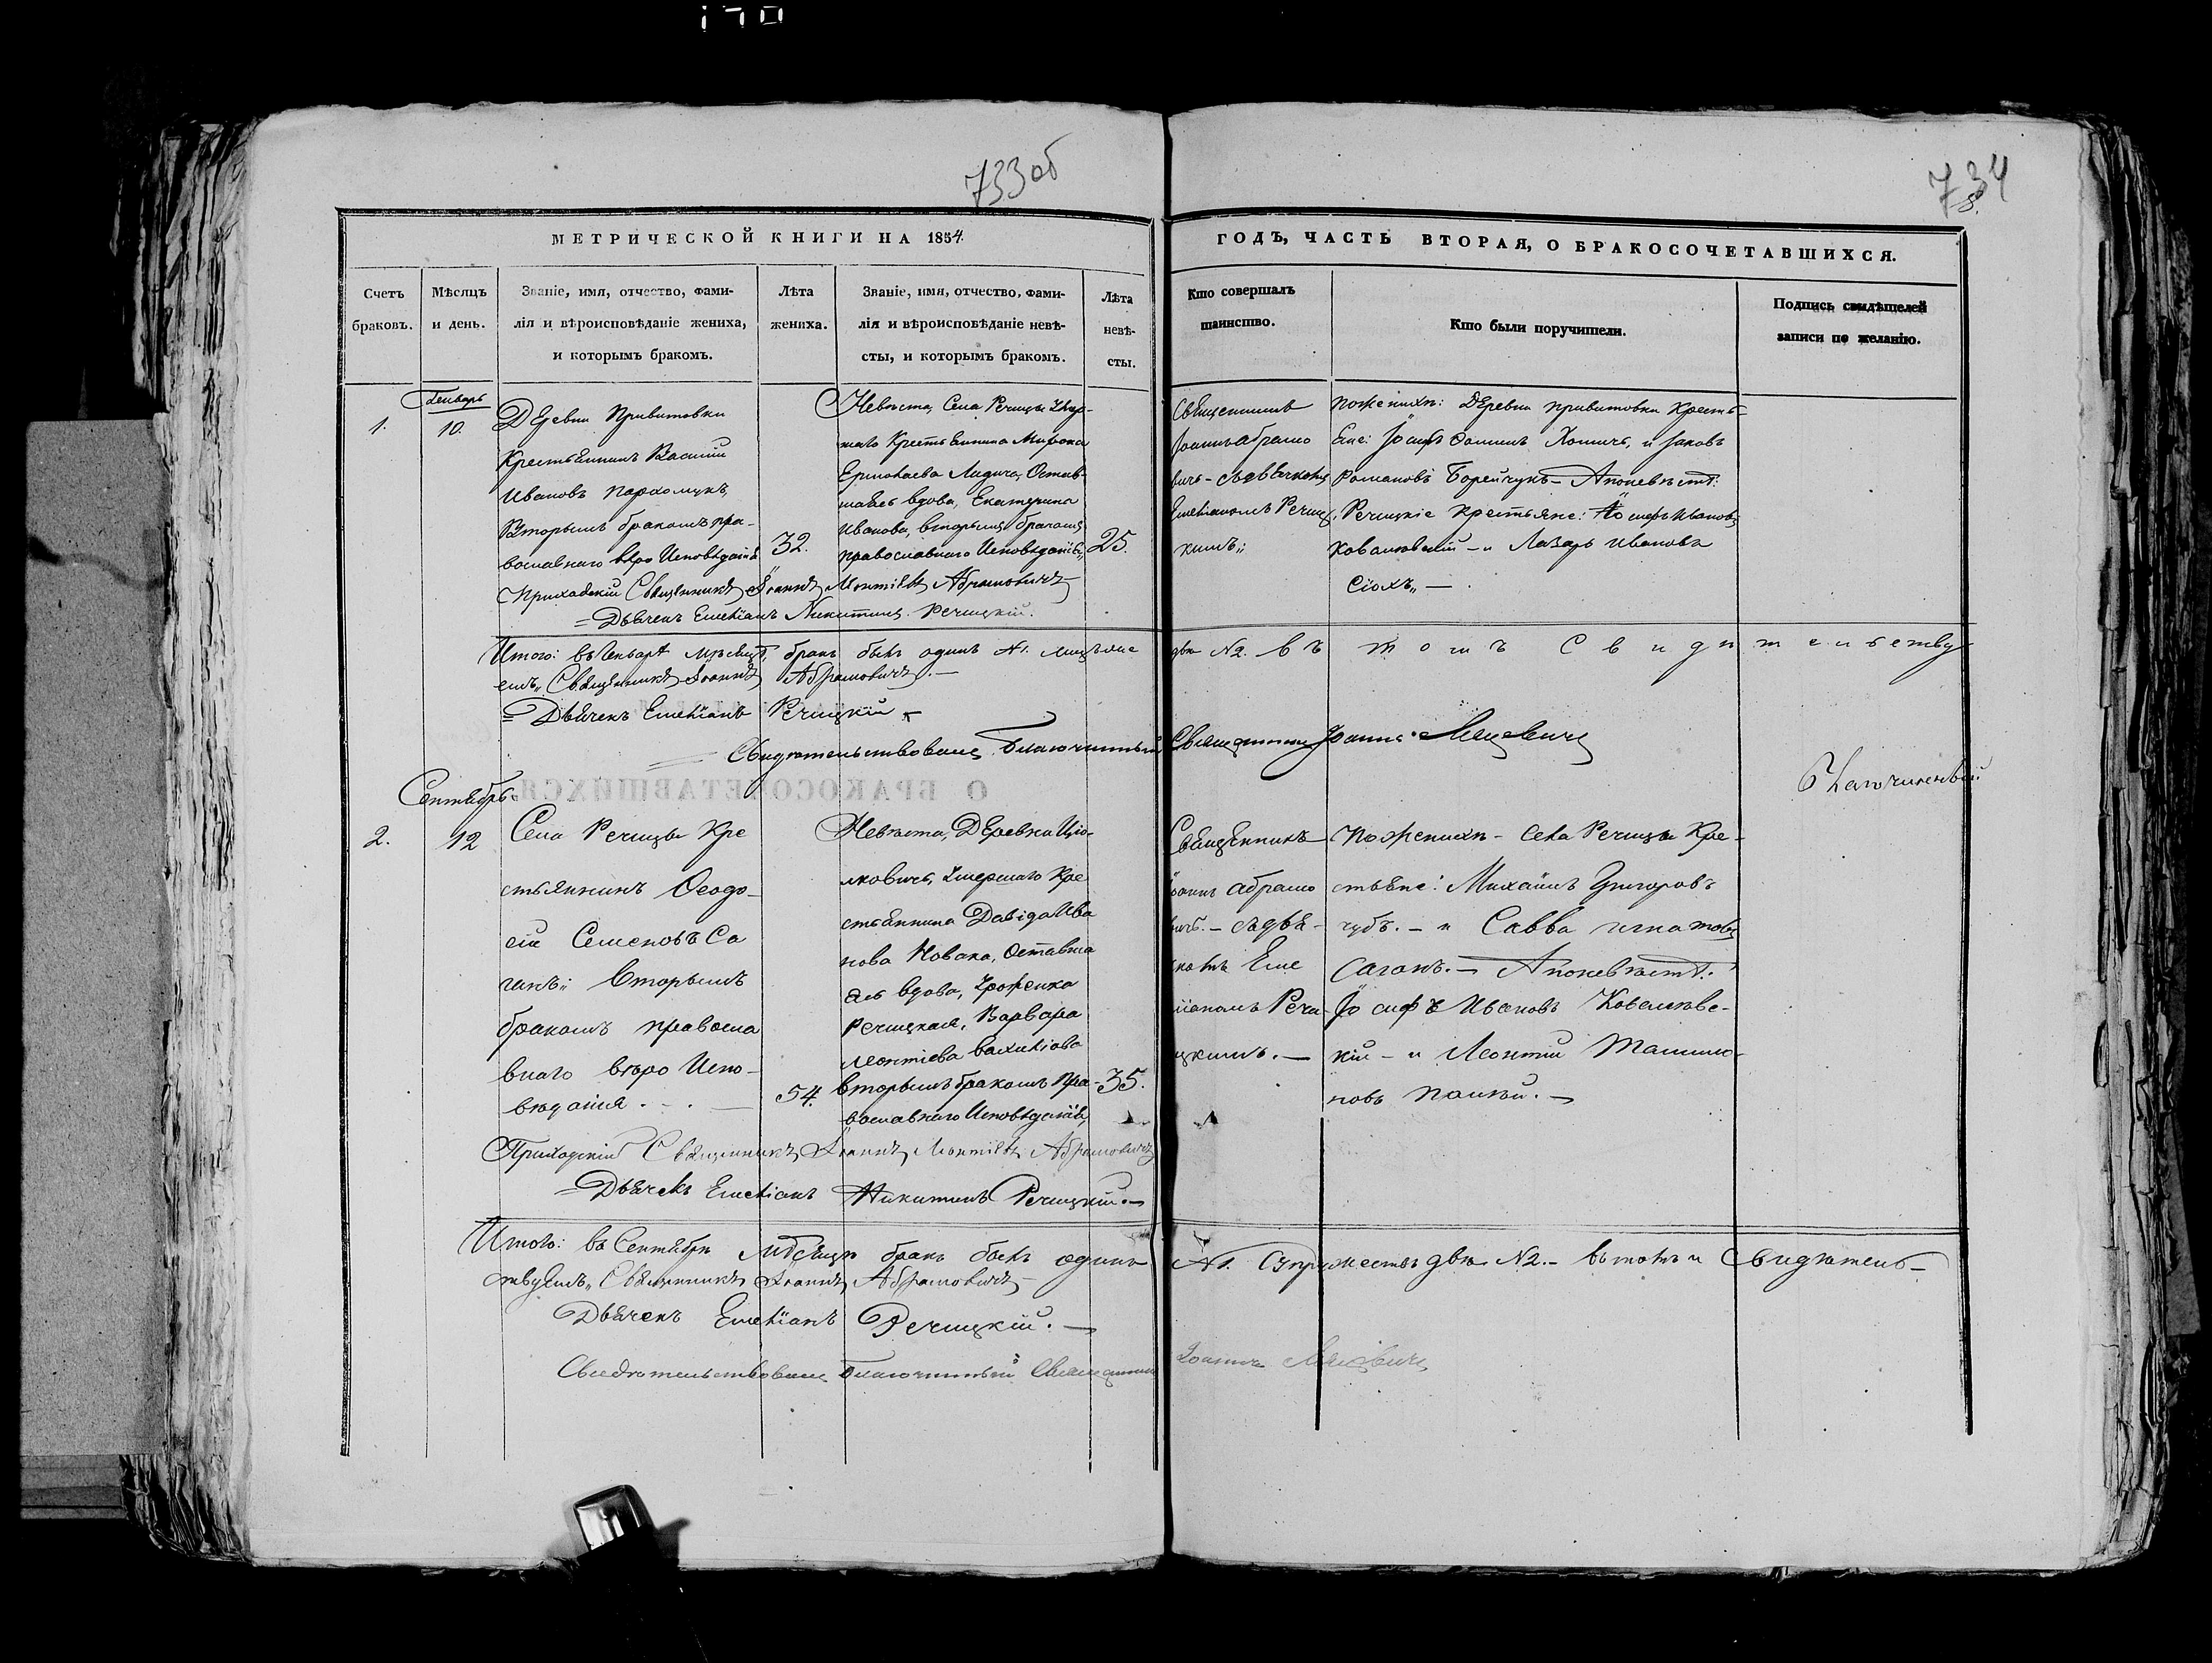 170
733 об
734
8.
МЕТРИЧЕСКОЙ КНИГИ НА 1854
ГОДЪ, ЧАСТЬ ВТОРАЯ, О БРАКОСОЧЕТАВШИХСЯ.
Счетъ
браковъ.
Мѣсяцъ
и день.
Званіе, имя, отчество, фами-
лія и вѣроисповѣданіе жениха,
и которымъ бракомъ.
Лѣта
жениха.
Званіе, имя, отчество, фами-
лія и вѣроисповѣданіе невѣ-
сты, и которымъ бракомъ.
Лѣта
невѣ-
сты.
Кто совершалъ
таинство.
Кто были поручители.
Подпись свидѣтелей
записи по желанію.
1.
Генварь
10.
Деревни Привитовки
Крестьянинъ Василий
Ивановъ Пархомукъ,
Вторымъ бракомъ пра-
вославнаго вѣро Исповѣданія
32.
Невѣста, Села Речицы Умер-
шаго Крестьянина Мирона
Ермолаева Лидича, Остав-
шаясь вдова, Екатерина
Иванова, вторымъ бракомъ
православнаго Исповѣданія,,
25.
Священникъ
Іоаннъ Абрамо
вичь - съ дьячкомъ
Емеліаномъ Речиц
кимъ,,
Поженихѣ: Деревни Привитовки Кресть-
яне: Іосифъ Хомичь, и Іаковъ
Романовъ Борейчукъ - Апоневѣстѣ:
Речицкіе Крестьяне: Іосифъ Ивановъ
Ковалевский - и Лазарь Ивановъ
Сіохъ,, —
Приходскій Священникъ Іоаннъ Леонтіевъ Абрамовичъ
= Дьячекъ Емеліанъ Никитинъ Речицкій.
Итого: въ Генварѣ мѣсяцѣ, бракъ былъ одинъ №1. лицъ
двѣ №2. въ томъ Свидѣтельству
емъ,, Священникъ Іоаннъ Абрамовичъ. —
= Дьячекъ Емеліанъ Речицкій —
Свидѣтельствовалъ Благочинный Священникъ Іоаннъ Ляцевичъ
Благочинный
О БРАКОСОЧЕТАВШИХСЯ.
Сентябрь
2.
12
Села Речицы Кре
стьянинъ Ѳеодо-
сій Семеновъ Са
ганъ,, Вторымъ
бракомъ правосла
внаго вѣро Испо-
вѣданія. - . —
54.
Невѣста, Деревни Ціо-
лковичь, Умершаго Кре
стьянина Давіда Ива
нова Новака, Оставша
ясь вдова, Урожонка
Речицкая, Варвара
Леонтіева
Вторымъ бракомъ Пра-
вославнаго Исповѣданія,,
35.
Священникъ
Іоаннъ Абрамо
вичъ. - съ дья-
комъ Еме
ліаномъ Речи-
цкимъ. —
Поженихѣ - села Речицы Кре-
стьяне: Михаилъ Григоровъ
чубъ. - и Савва Игнатовъ
Саганъ. — Апоневѣстѣ:
Іосифъ Ивановъ Ковалевс-
кій - и Леонтій
новъ —
Приходскій Священникъ Іоаннъ Леонтіевъ Абрамовичъ
= Дьячекъ Емеліанъ Никитинъ Речицкій. —
Итого: въ Сентябрѣ мѣсяцѣ бракъ былъ одинъ №1. Супружествъ двѣ №2. - въ томъ и Свидѣтель-
ствуемъ,, Священникъ Іоаннъ Абрамовичъ —
Дьячекъ Емеліанъ Речицкій. —
Свидѣтельствовалъ Благочинный Священникъ Іоаннъ Ляцевичъ